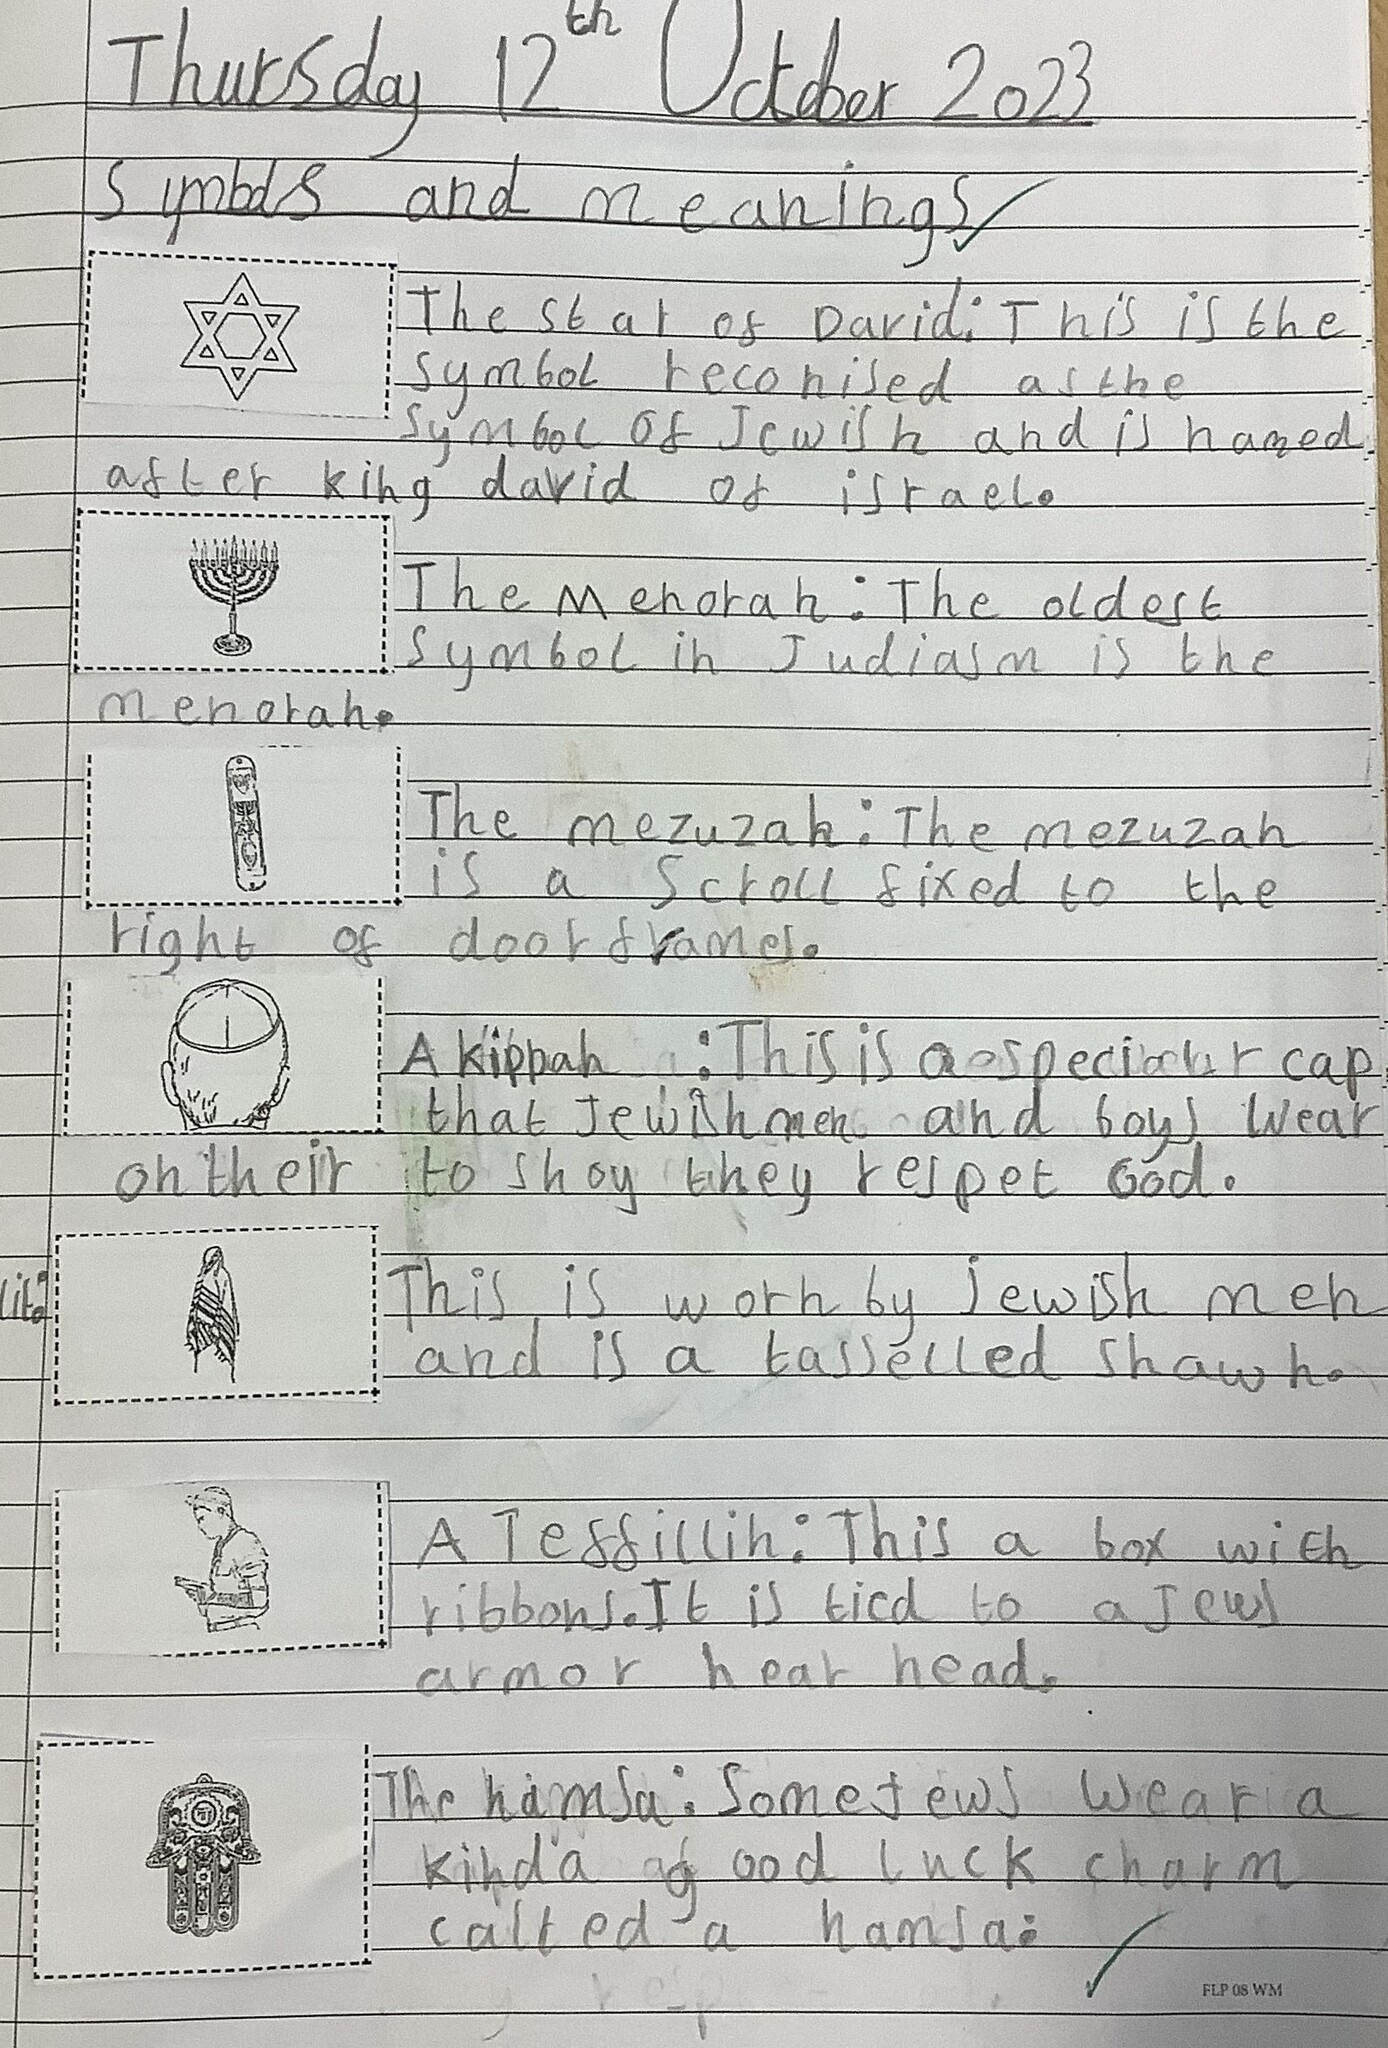 Thursday 12th October 2023
Symbols and meanings
The star of David: This is the
symbol reconised as the
symbol of Jewish and is named
after king david of israel.
The Menorah: The oldest
symbol in Judiasm is the
menorah.
The mezuzah: The mezuzah
is a scroll fixed to the
right of doorframes.
A kippah : This is a specular cap
that Jewish men and boys wear
on their to shoy they respet God.
lit:
This is worn by jewish men
and is a tasselled shawh.
A Teffillin: This a box with
ribbons. It is tied to a Jews
arm or near head.
The hamsa: Some Jews wear a
kinda good luck charm
called a hamsa:
FLP 08 WM